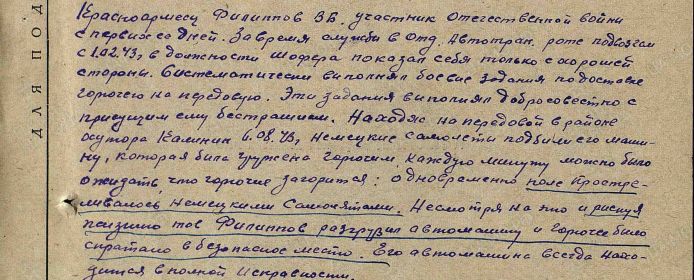 ДЛЯ ПОД
Красноармеец Филиппов В.Б. участник Отечественной войны
с первых ее дней. За время службы в Отд. Автотран. роте подвозгсм
с 1.02.43г. в должности Шофера показал себя только с хорошей
стороны. Систематически выполнял боевые задания по доставке
горючего на передовую. Эти задания выполнял добросовестно с
присущим ему бесстрашием. Находясь на передовой в районе
хутора Калинин 6.08.43г. немецкие самолеты подбили его маши-
ну, которая была гружена горючим. Каждую минуту можно было
ожидать, что горючее загорится: одновременно поле простре-
ливалось немецкими самолетами. Несмотря на это и рискуя
жизнию тов Филиппов разгрузил автомашину и горючее было
спрятано в безопасное место. Его автомашина всегда нахо-
дится в полной исправности.